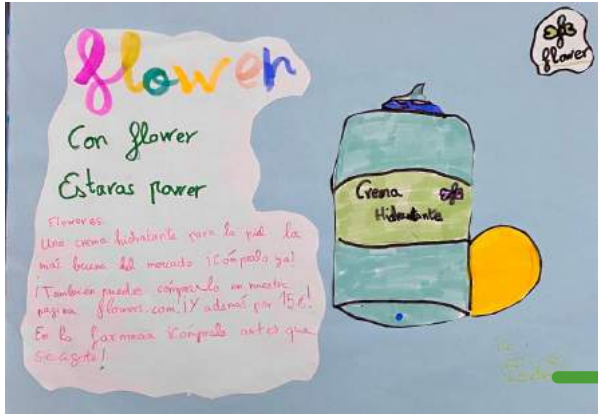 flower
Con flower
Estaras power
Flower es:
Una crema hidratante para la piel la
mas buena del mercado ¡Cómpralo ya!
¡También puedes comprarlo en nuestra
pagina flower.com! ¡Y además por 15€!
En la farmacia ¡Cómpralo antes que
se agote!
flower
Crema
Hidratante